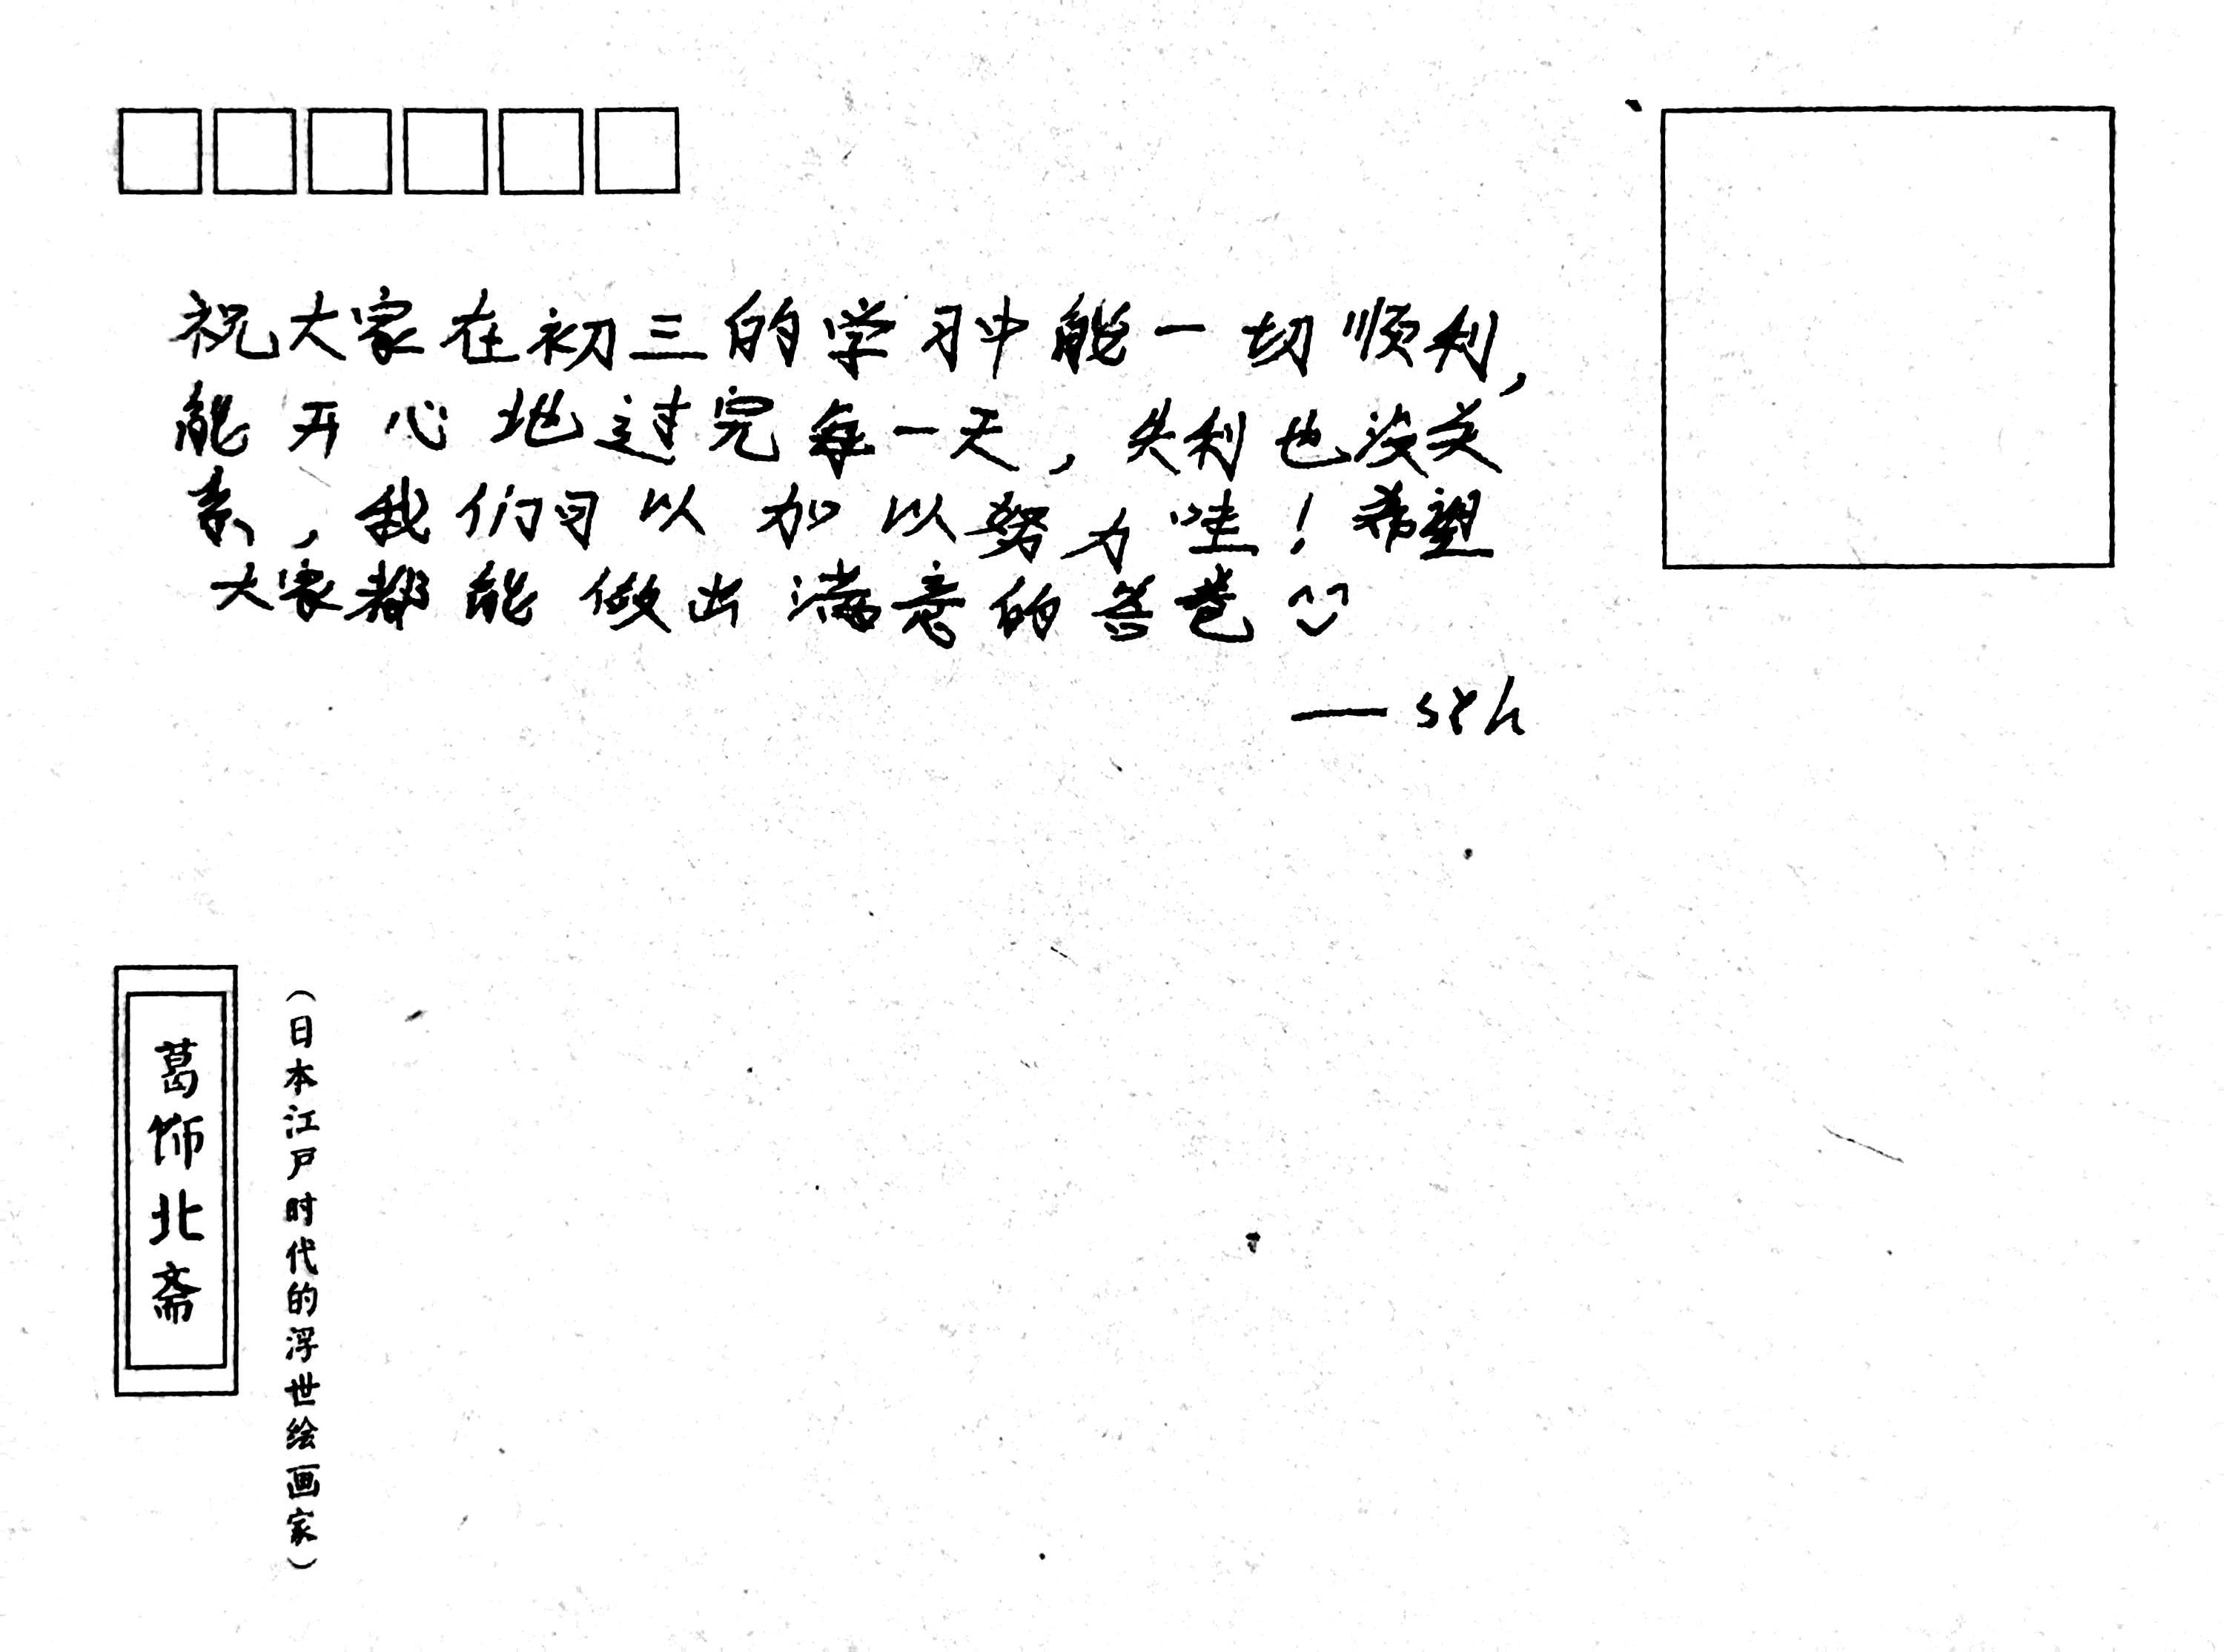 祝大家在初三的学习中能一切顺利,
能开心地过完每一天,失利也没关
系,我们可以加以努力哇!希望
大家都能做出满意的答卷
——syh
葛饰北斋
(日本江户时代的浮世绘画家)